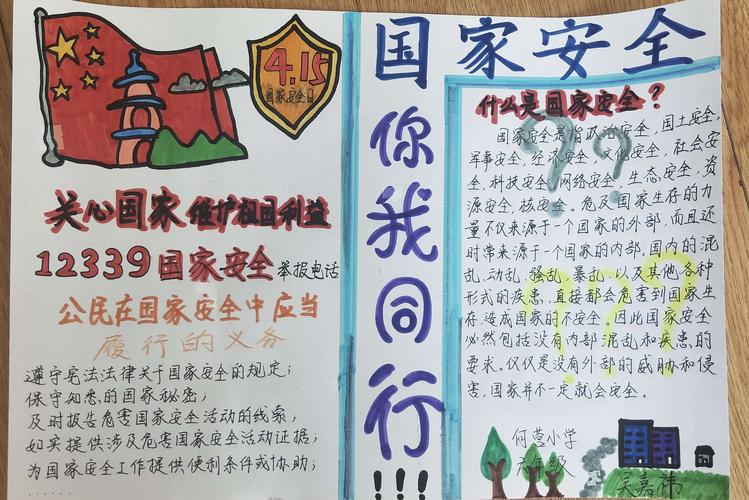 国家安全
你我同行!!!
4.15
国家安全日
关心国家 维护祖国利益
12339国家安全 举报电话
公民在国家安全中应当
履行的义务
遵守宪法法律关于国家安全的规定;
保守知悉的国家秘密;
及时报告危害国家安全活动的线索;
如实提供涉及危害国家安全活动证据;
为国家安全工作提供便利条件或协助;
......
什么是国家安全?
国家安全是指政治安全,国土安全,
军事安全,经济安全,文化安全,社会安
全,科技安全,网络安全,生态安全,资
源安全,核安全。危及国家生存的力
量不仅来源于一个国家的外部,而且还
时常来源于一个国家的内部。国内的混
乱、动乱、骚乱、暴乱,以及其他各种
形式的疾患,直接都会危害到国家生
存,造成国家的不安全。因此国家安全
必然包括没有内部混乱和疾患的
要求。仅仅是没有外部的威胁和侵
害,国家并不一定就会安全。
何营小学
六年级
吴嘉祎